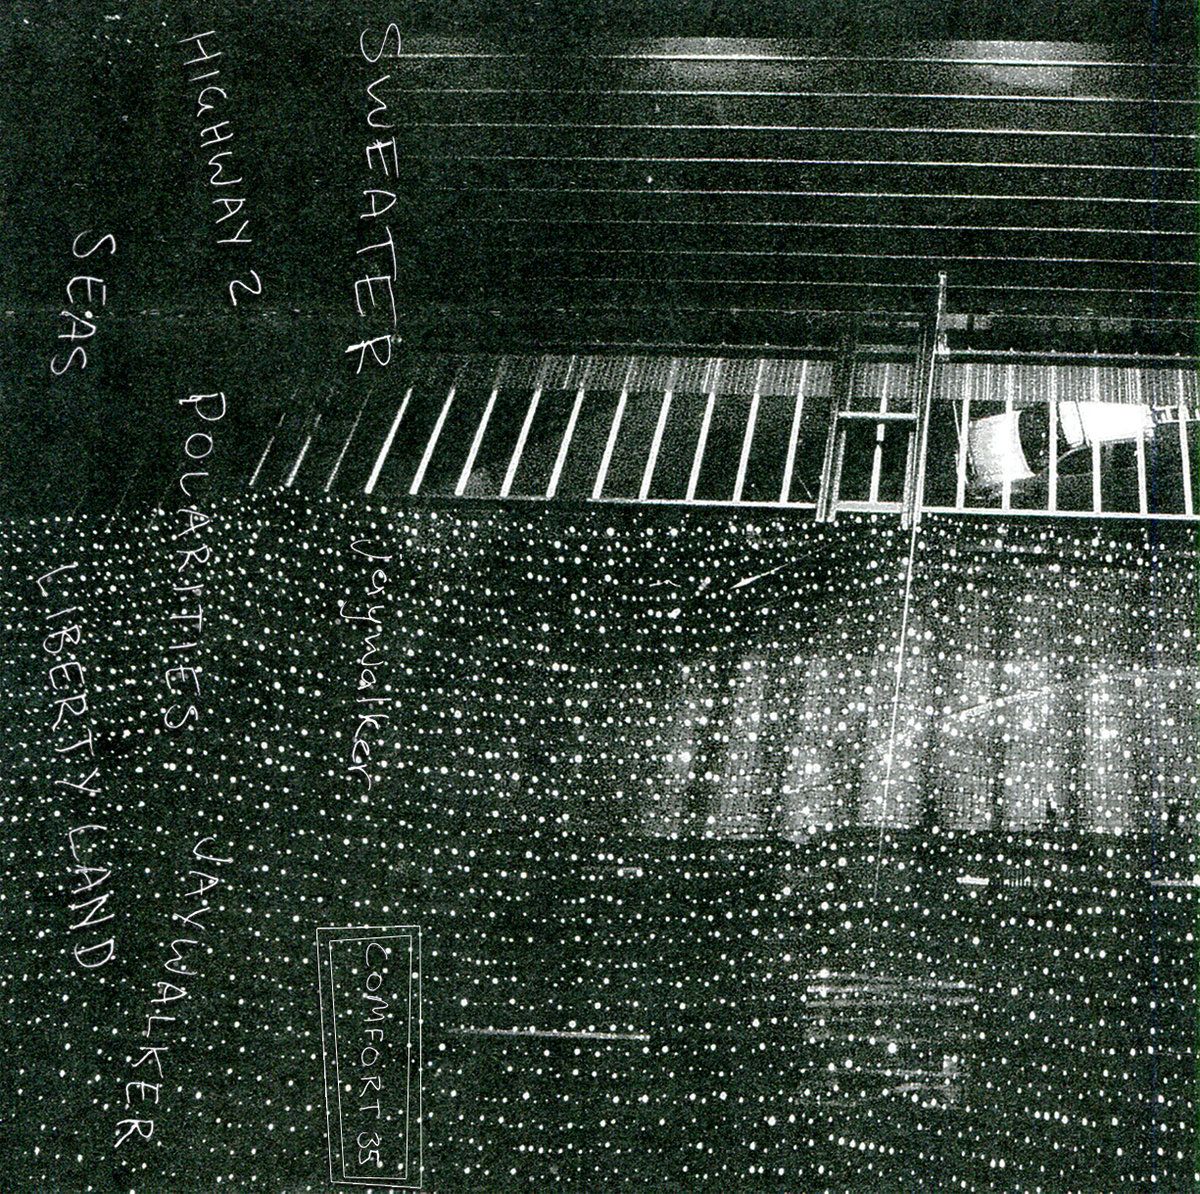 SWEATER Jaywalker COMFORT 35
HIGHWAY 2 POLARITIES JAYWALKER
SEAS LIBERTY LAND